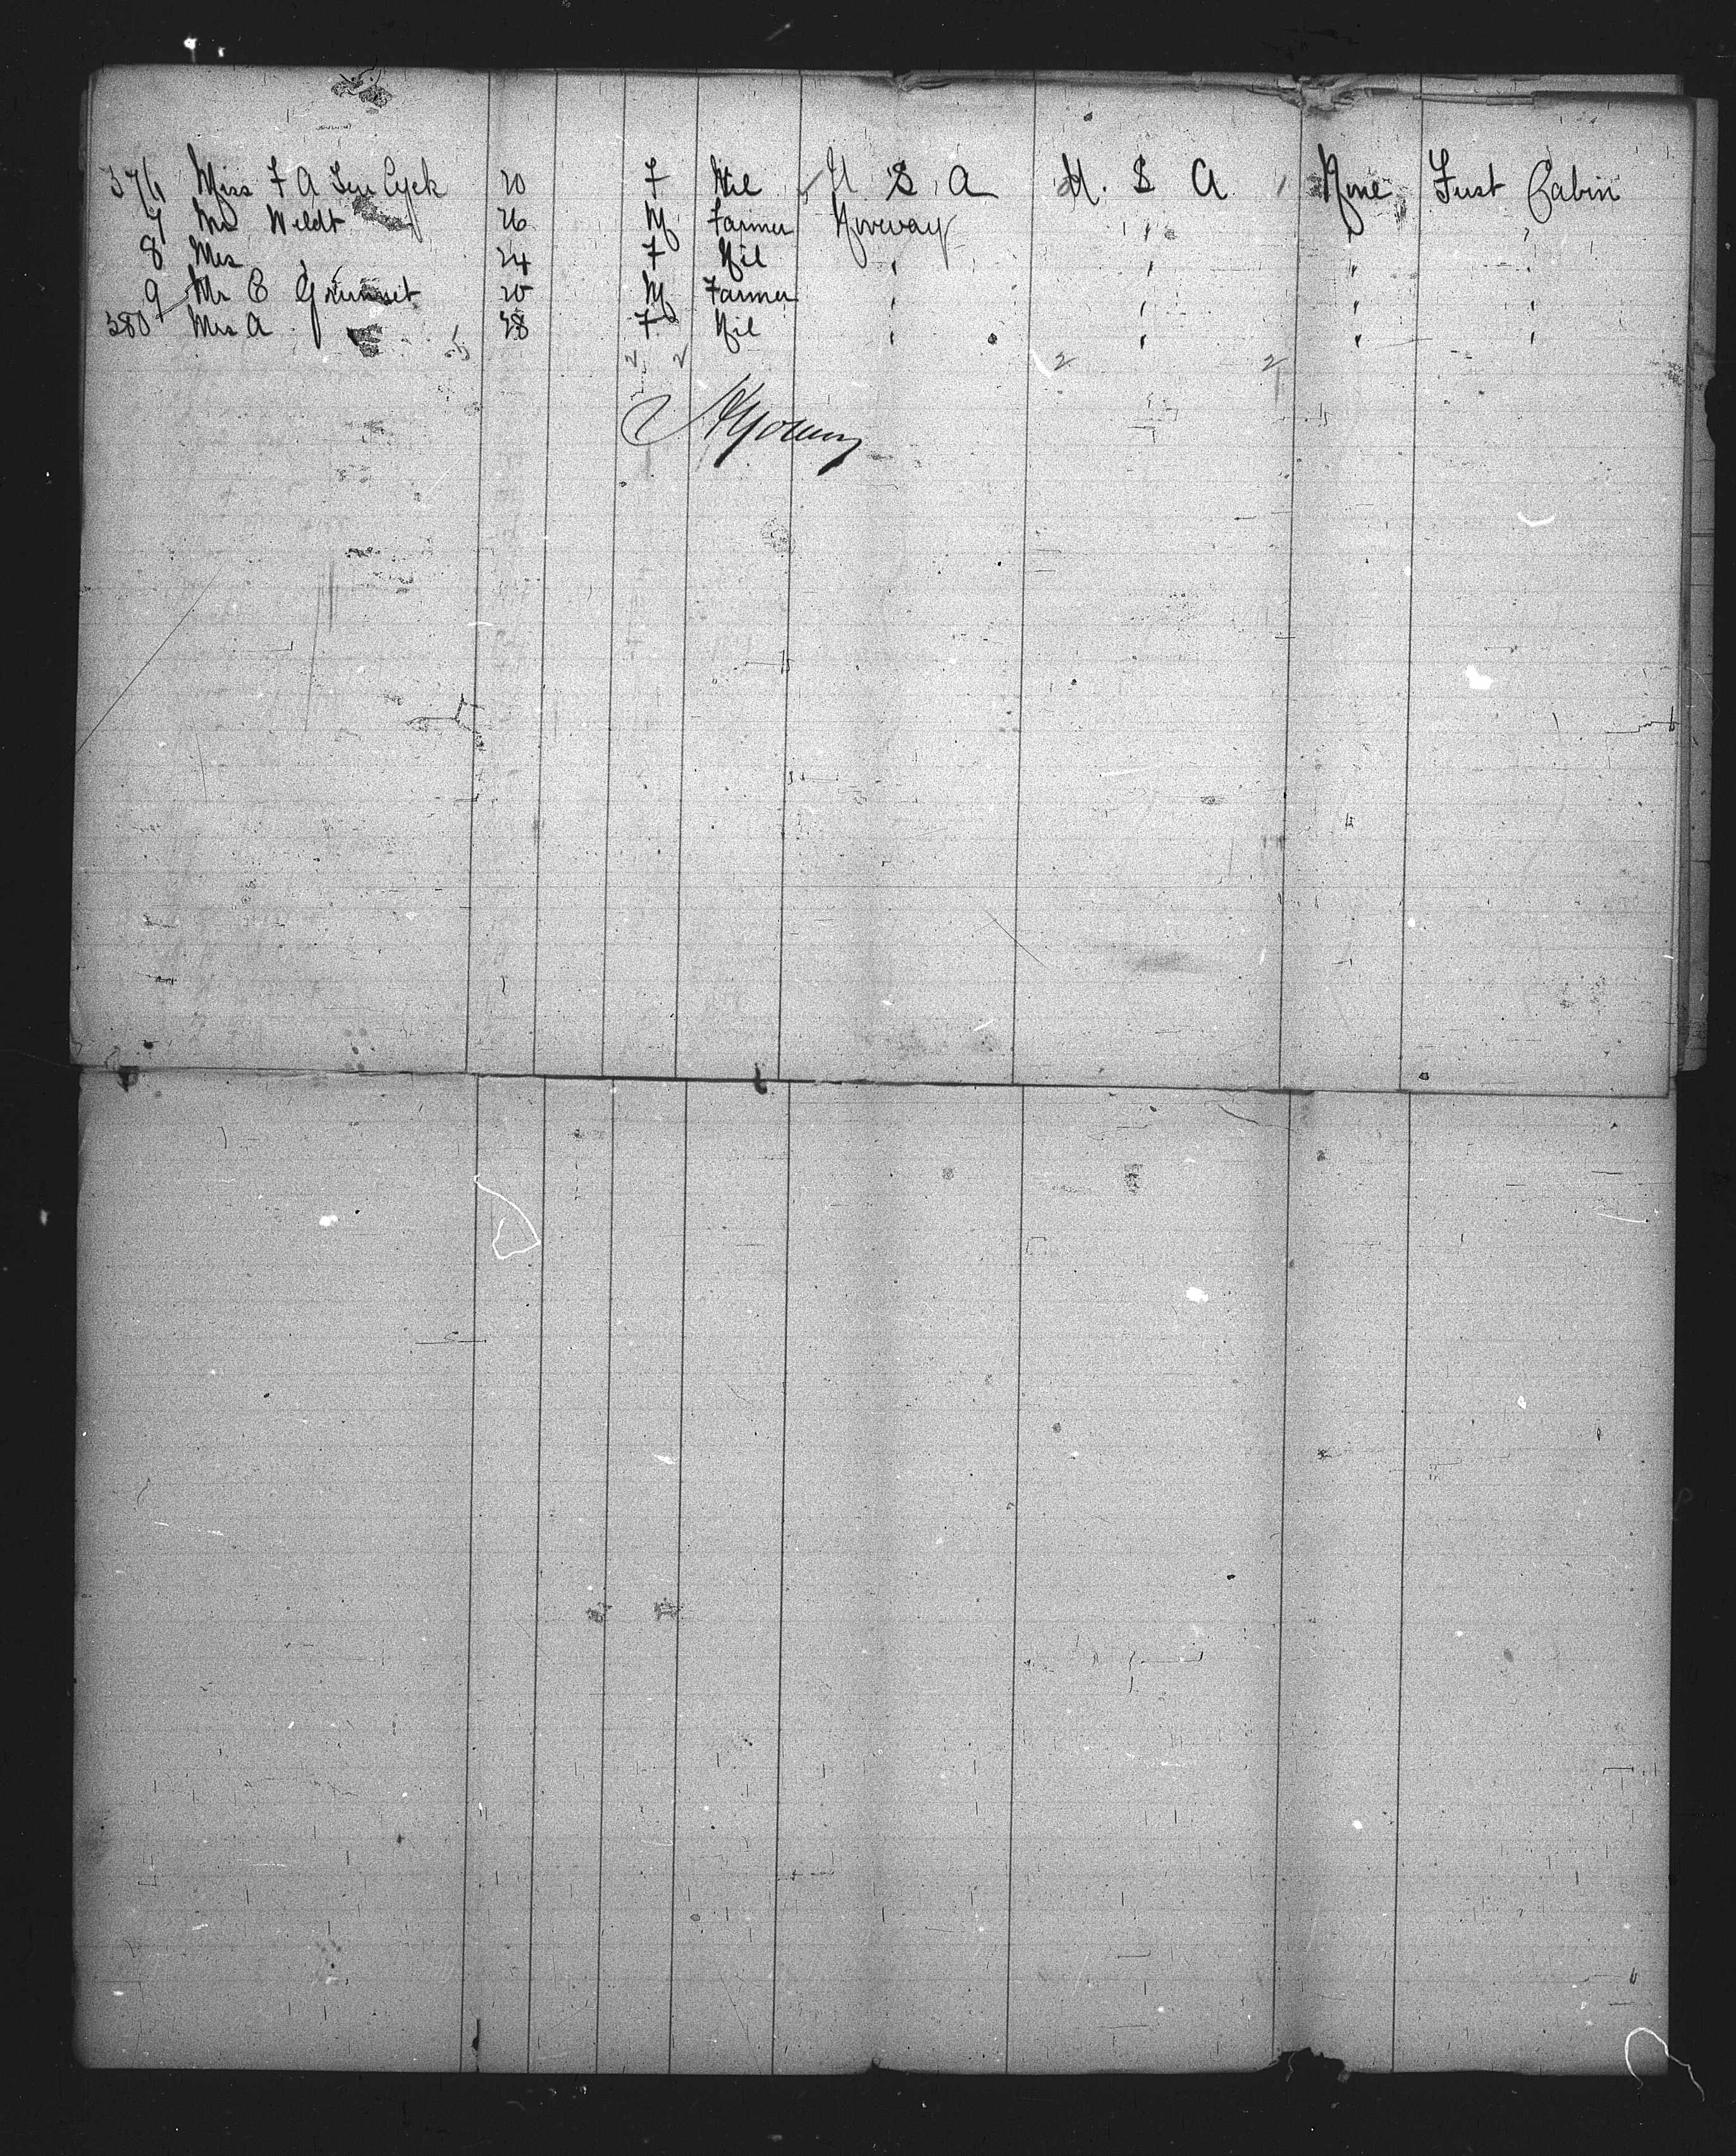 376 Miss F A Ten Eyck 20 F Nil U S A U. S A None First Cabin
7 Mr Weldt 26 M Farmer Norway " " "
8 Mrs 24 F Nil " " " "
9 Mr C 25 M Farmer " " " "
380 Mrs A 28 F Nil " " " "
2 2 2 2